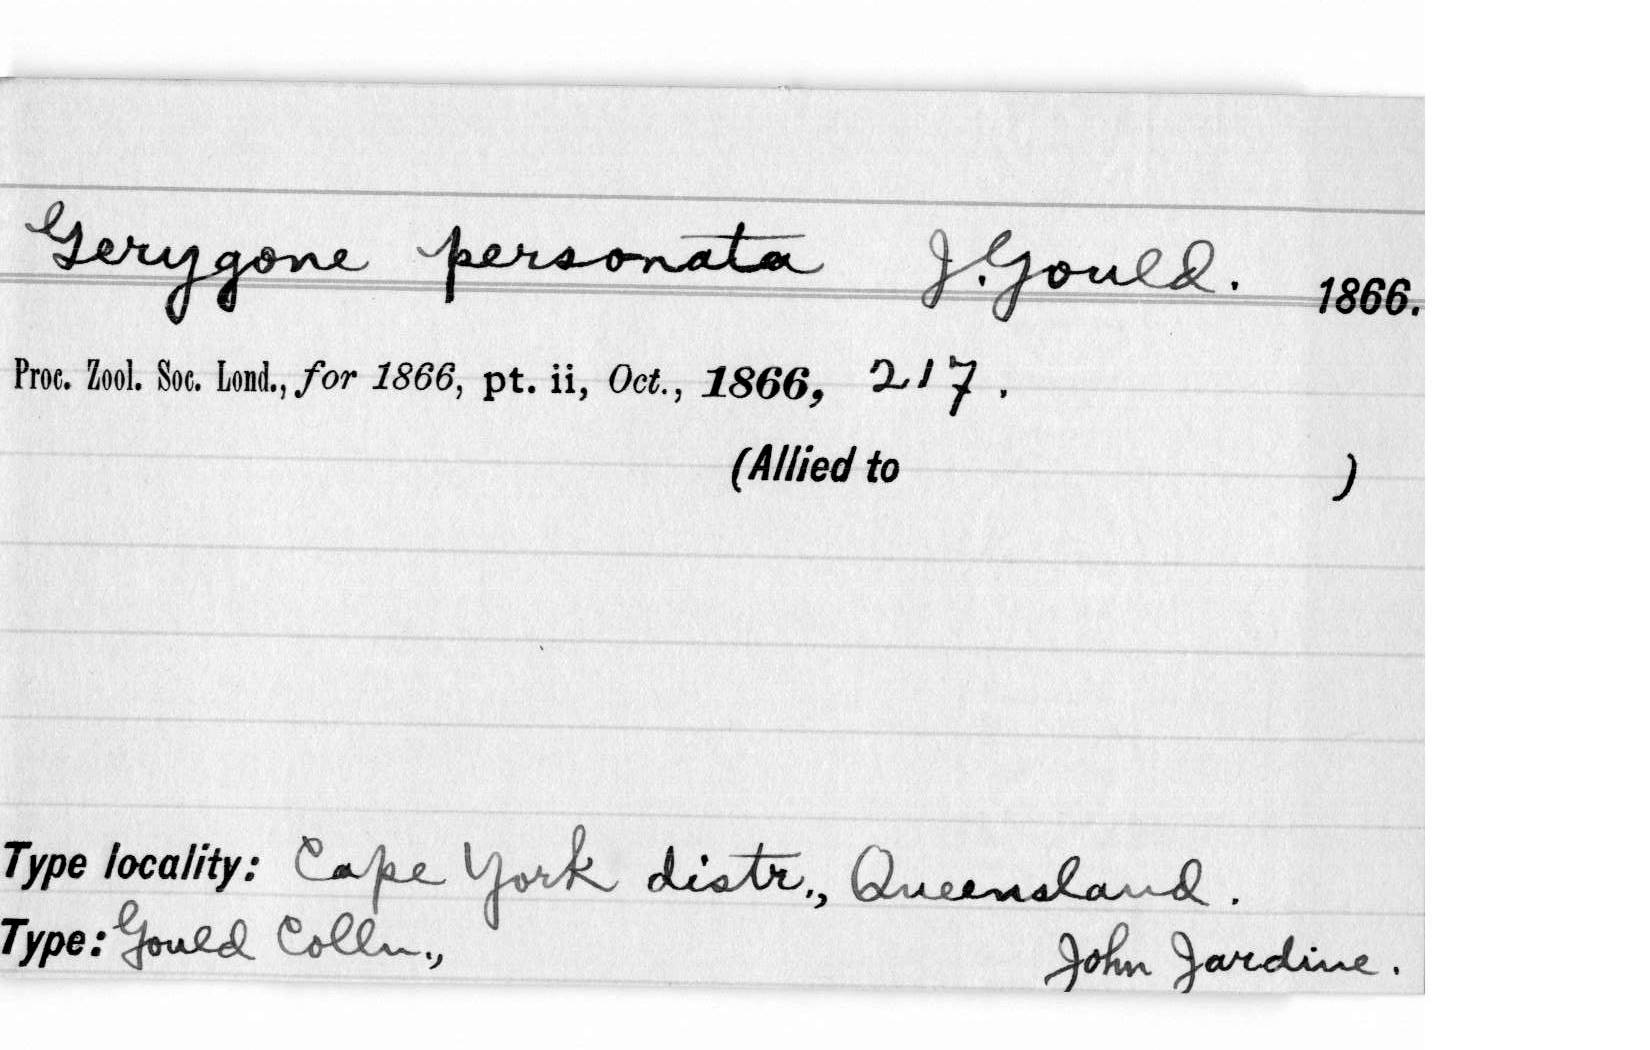 Gerygone personata J. Gould. 1866.
Proc. Zool. Soc. Lond., for 1866, pt. ii, Oct., 1866, 217.
(Allied to )
Type locality: Cape York distr., Queensland.
Type: Gould Colln., John Jardine.